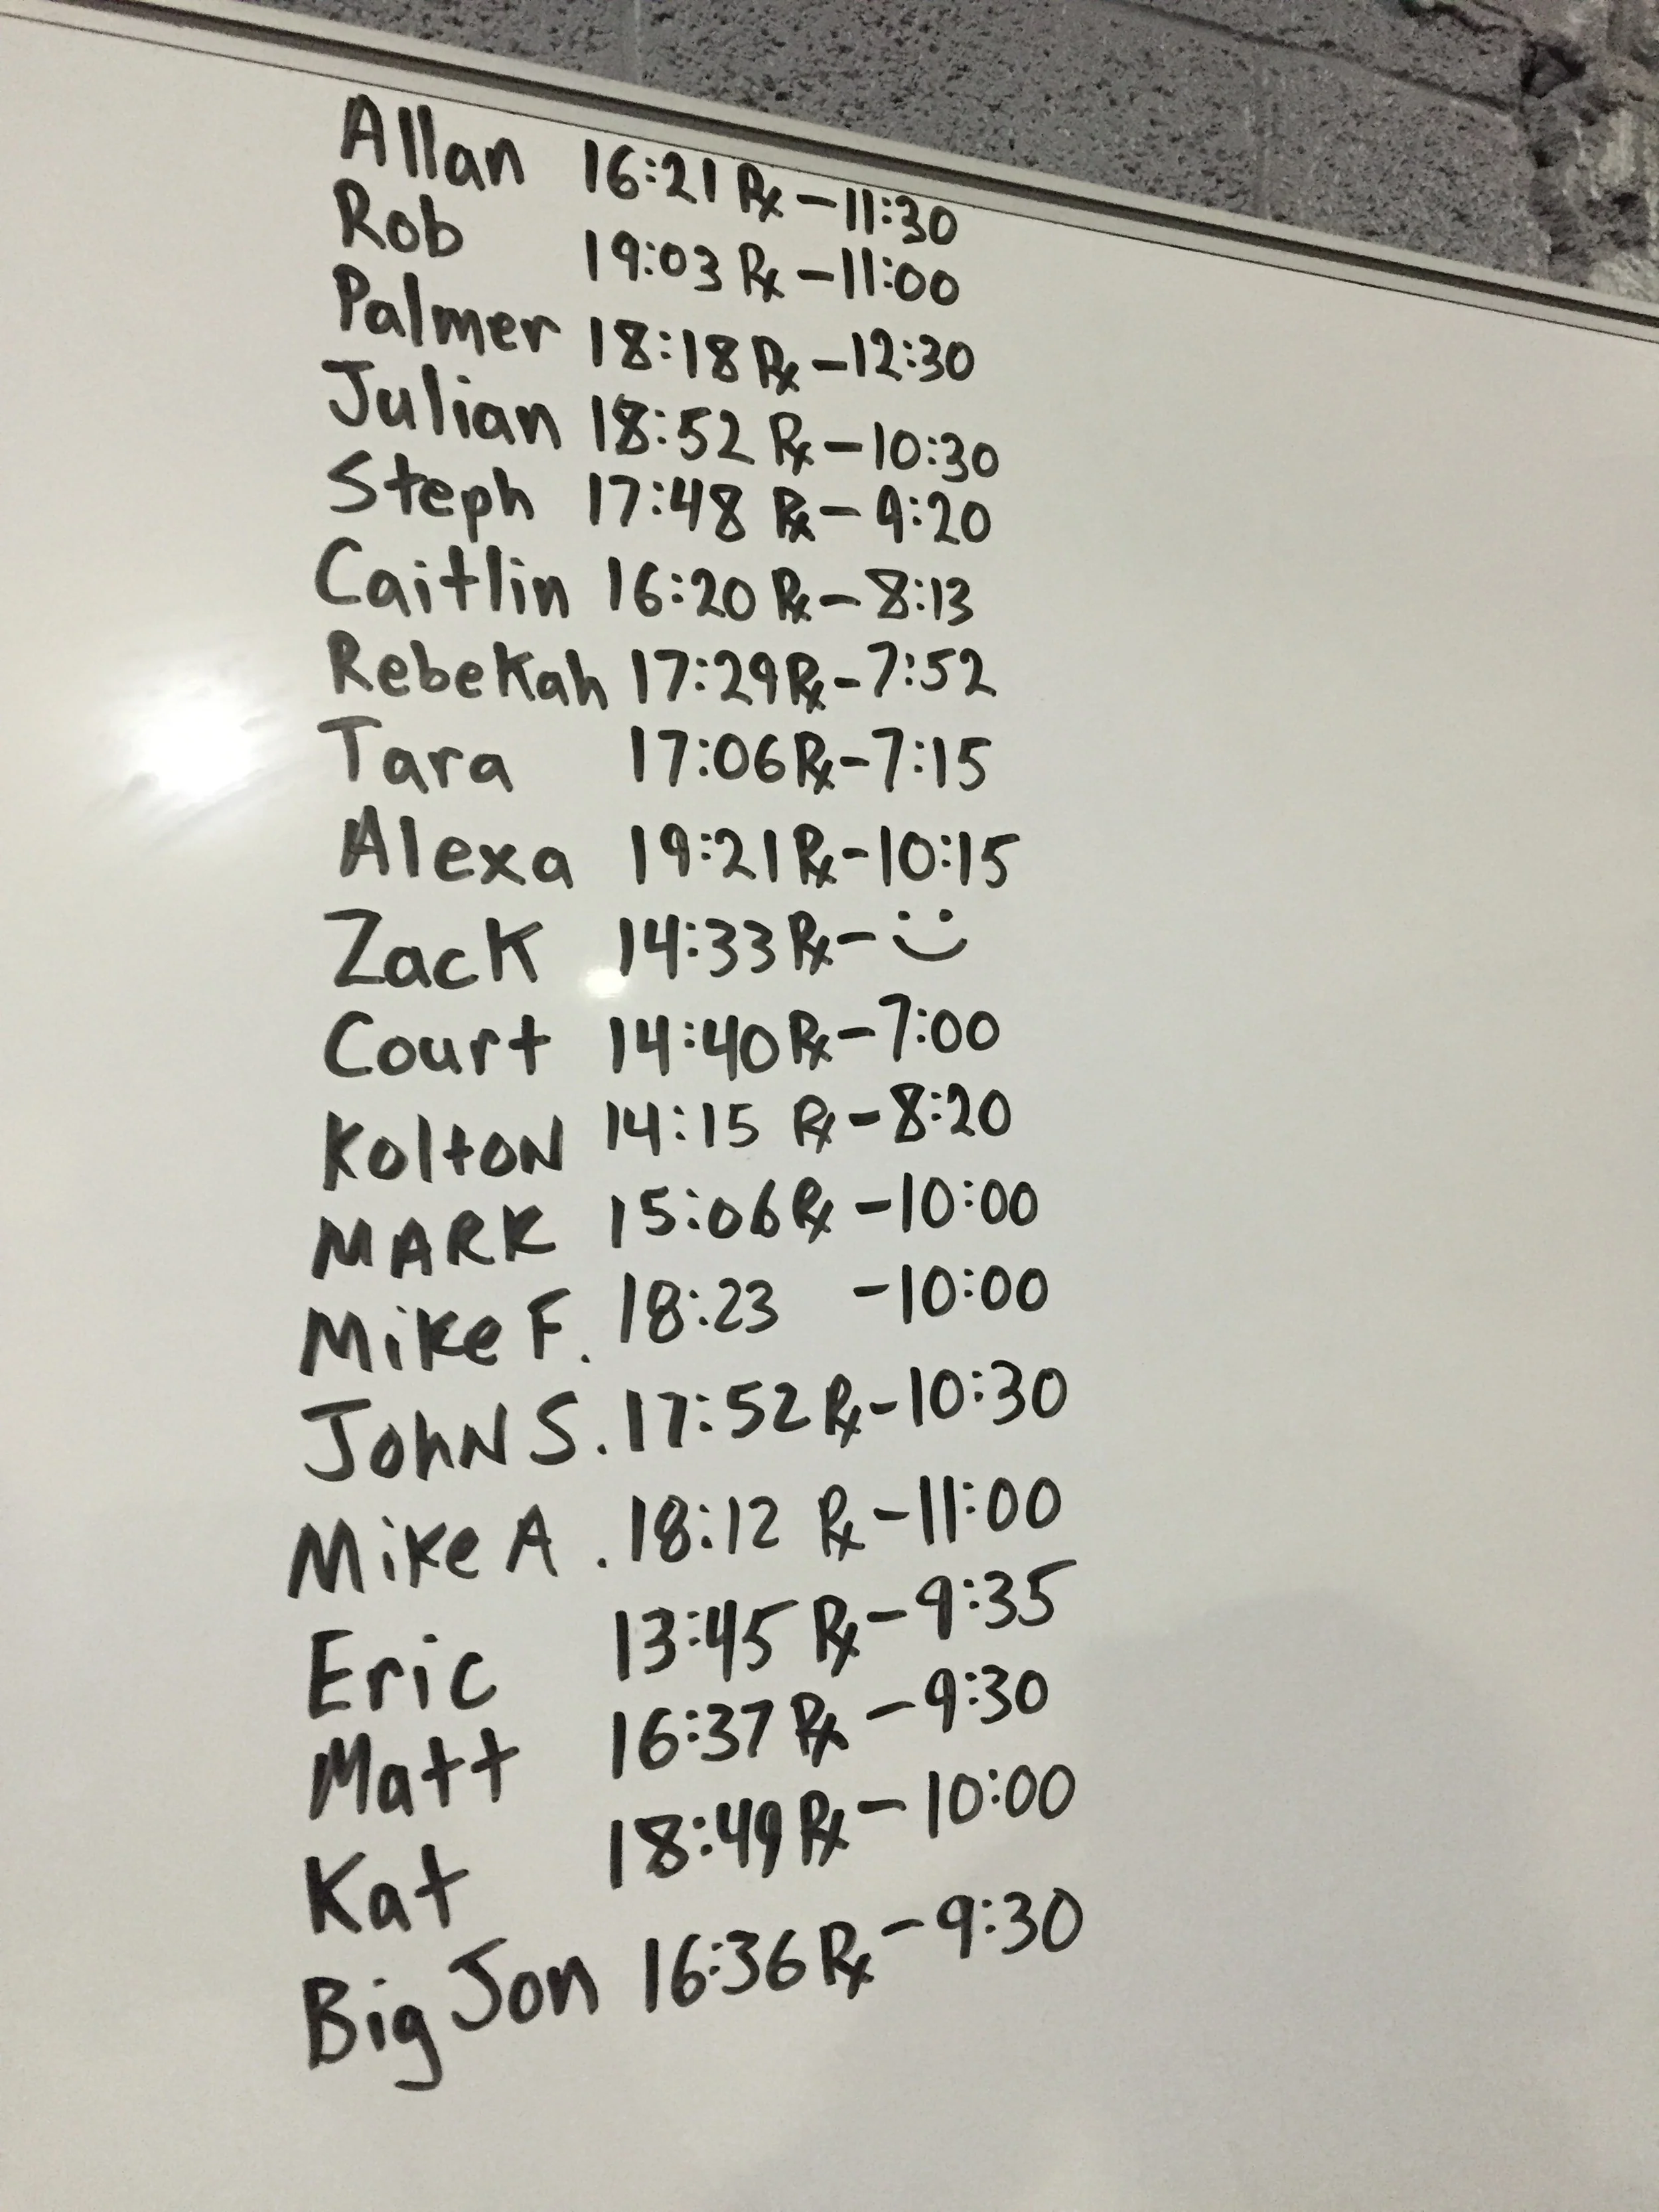 Allan 16:21 ℞ - 11:30
Rob 19:03 ℞ - 11:00
Palmer 18:18 ℞ - 12:30
Julian 18:52 ℞ - 10:30
Steph 17:48 ℞ - 9:20
Caitlin 16:20 ℞ - 8:13
Rebekah 17:29 ℞ - 7:52
Tara 17:06 ℞ - 7:15
Alexa 19:21 ℞ - 10:15
Zack 14:33 ℞ - :)
Court 14:40 ℞ - 7:00
KoltoN 14:15 ℞ - 8:20
MARK 15:06 ℞ - 10:00
Mike F. 18:23 - 10:00
JohN S. 17:52 ℞ - 10:30
Mike A. 18:12 ℞ - 11:00
Eric 13:45 ℞ - 9:35
Matt 16:37 ℞ - 9:30
Kat 18:49 ℞ - 10:00
Big Jon 16:36 ℞ - 9:30